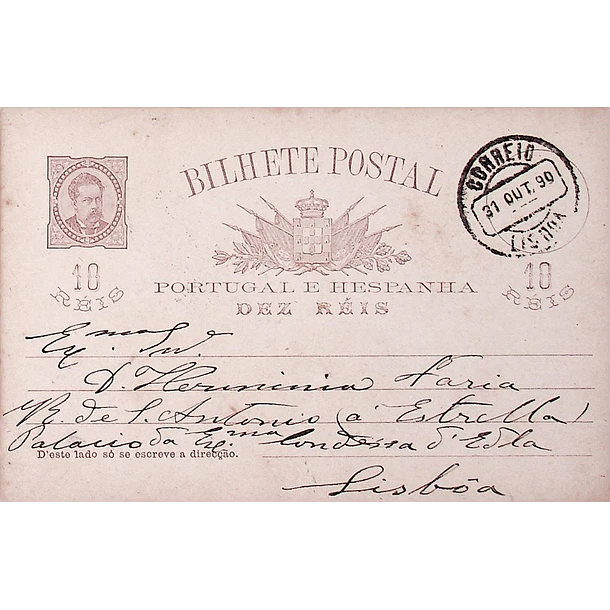 BILHETE POSTAL
CORREIO
31 OUT. 90
LISBOA
10
RÉIS
10
RÉIS
PORTUGAL E HESPANHA
DEZ RÉIS
Exma Snra.
D. Herminia Faria
R. de S. Antonio (á Estrella)
Palacio da Exma Condessa d'Edla
D'este lado só se escreve a direcção.
Lisbôa